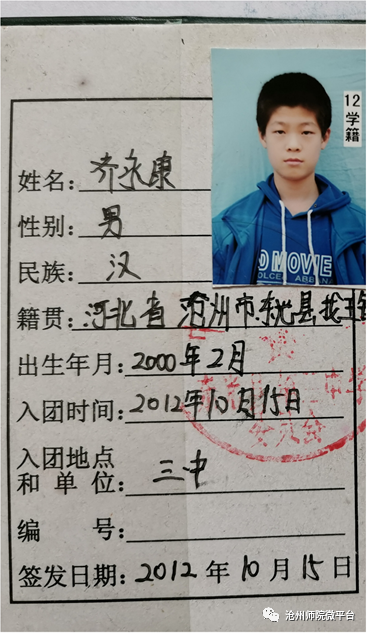 12
学籍
姓名: 齐永康
性别: 男
民族: 汉
籍贯: 河北省 沧州市东光县找王镇
出生年月: 2000年2月
入团时间: 2012年10月15日
入团地点
和单位: 三中
编 号:
签发日期: 2012年10月15日
沧州师院微平台